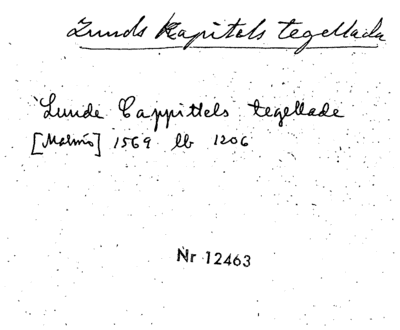 Lunds Kapitels tegellada
Lunde Cappittels tegellade
[Malmö] 1569 lb 1206
Nr 12463